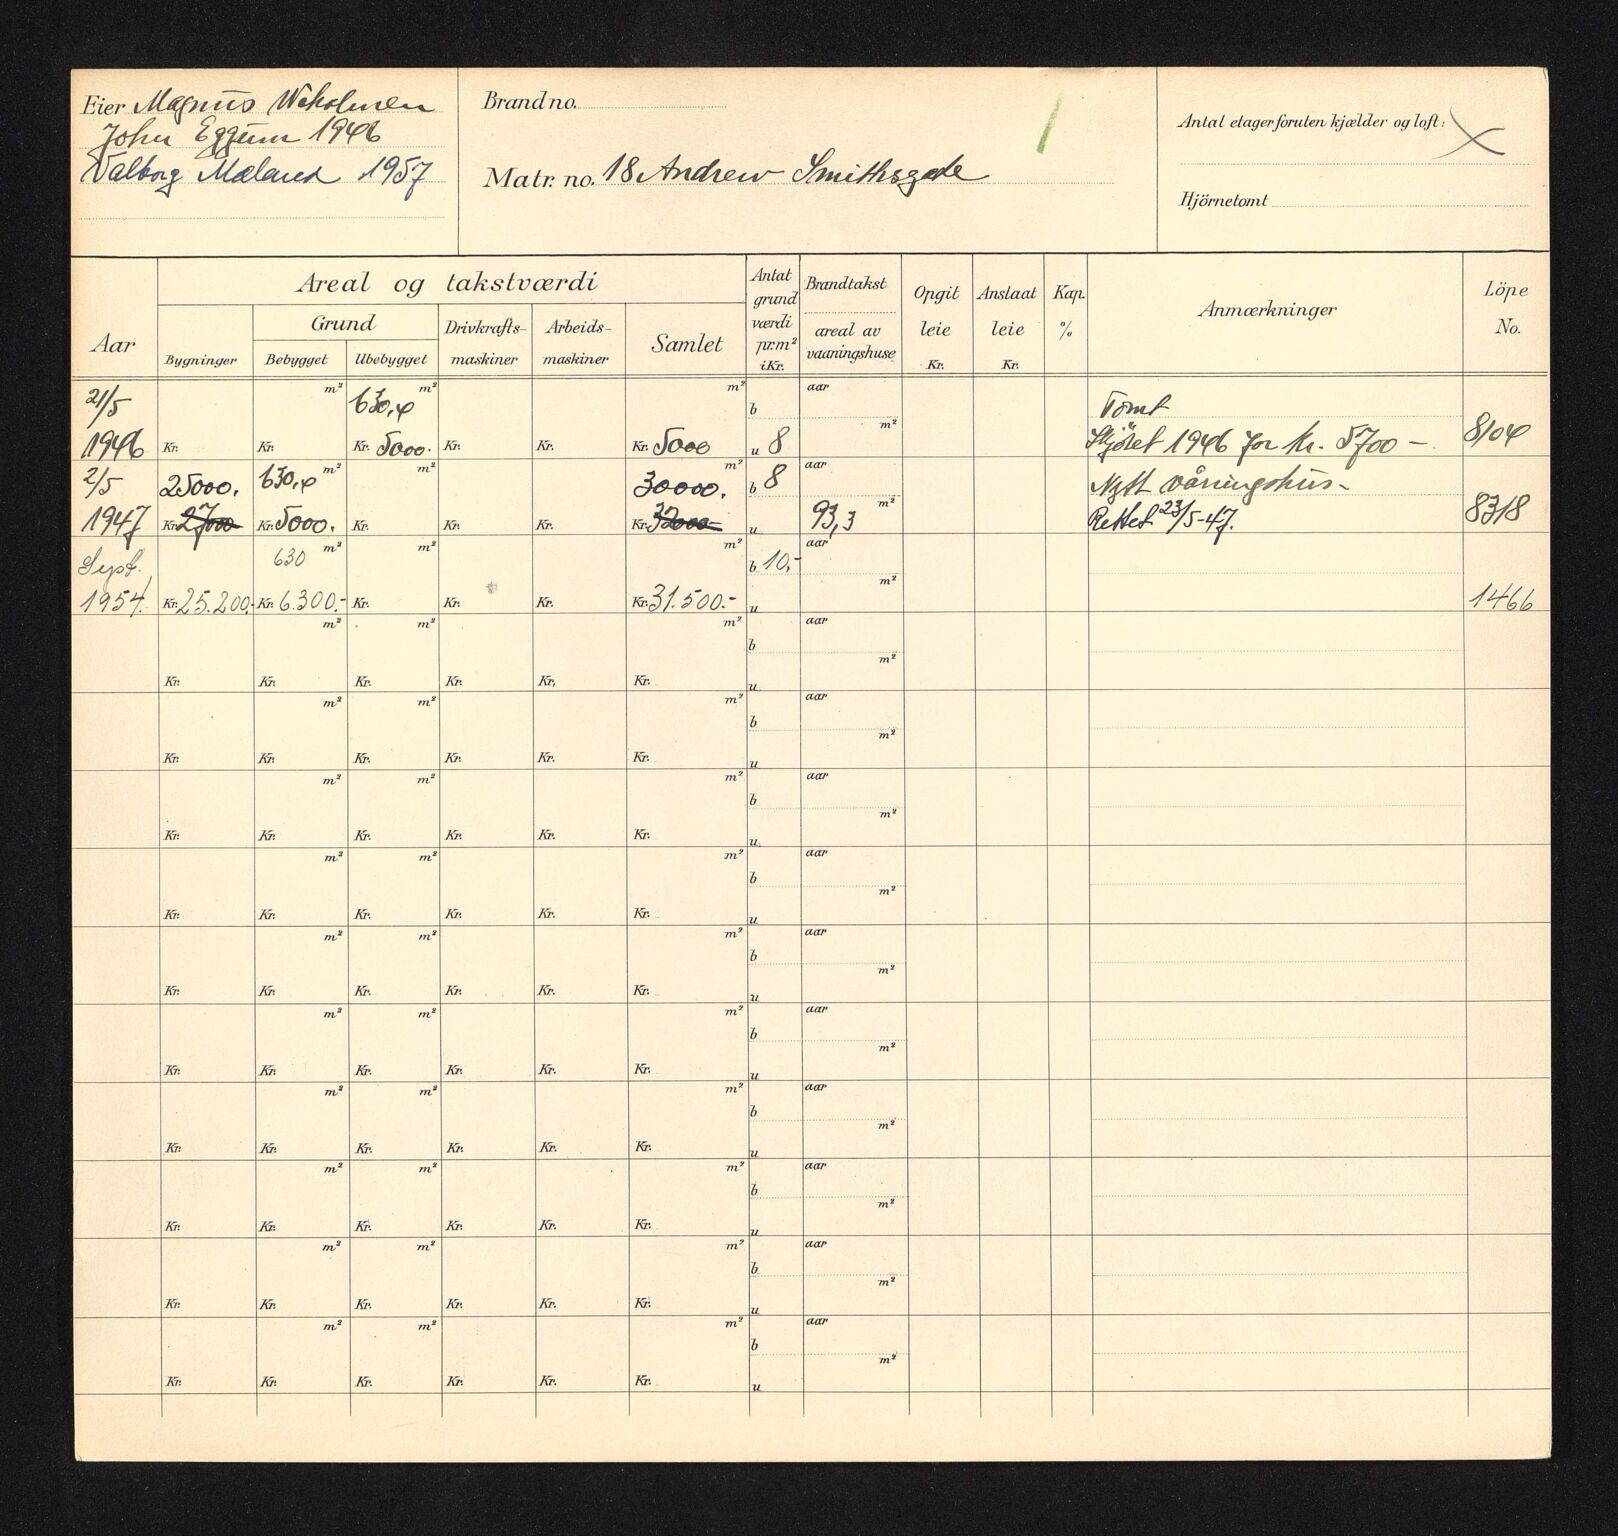 Eier Magnus Wikolmen
John Eggum 1946
Valborg Mæland 1957
Brand no.
Matr. no. 18 Andrew Smithsgate
Antal etager foruten kjælder og loft:
Hjörnetomt
Aar
Areal og takstværdi
Grund
Bygninger
Bebygget
Ubebygget
Drivkrafts-
maskiner
Arbeids-
maskiner
Samlet
Antat
grund
værdi
pr. m²
i Kr.
Brandtakst
areal av
vaaningshuse
Opgit
leie
Kr.
Anslaat
leie
Kr.
Kap.
%
Anmærkninger
Löpe
No.
21/5 m² 630,4 m² m² b aar Tomt
1946 Kr. Kr. Kr. 5000. Kr. Kr. Kr. 5000 u 8 m² Skjötet 1946 for kr. 5700 – 8104
2/5 25000. 630,4 m² m² 30000. m² b 8 aar Nytt våningshus-
1947 Kr. 27000 Kr. 5000. Kr. Kr. Kr. Kr. 32000- u 93,3 m² Rettet 23/5-47. 8318
Sept. 630 m² m² m² b 10,- aar
1954. Kr. 25.200,- Kr. 6.300.- Kr. Kr. Kr. Kr. 31.500.- u m² 1466
m² m² m² b aar
Kr. Kr. Kr. Kr. Kr. Kr. u m²
m² m² m² b aar
Kr. Kr. Kr. Kr. Kr. Kr. u m²
m² m² m² b aar
Kr. Kr. Kr. Kr. Kr. Kr. u m²
m² m² m² b aar
Kr. Kr. Kr. Kr. Kr. Kr. u m²
m² m² m² b aar
Kr. Kr. Kr. Kr. Kr. Kr. u m²
m² m² m² b aar
Kr. Kr. Kr. Kr. Kr. Kr. u m²
m² m² m² b aar
Kr. Kr. Kr. Kr. Kr. Kr. u m²
m² m² m² b aar
Kr. Kr. Kr. Kr. Kr. Kr. u m²
m² m² m² b aar
Kr. Kr. Kr. Kr. Kr. Kr. u m²
m² m² m² b aar
Kr. Kr. Kr. Kr. Kr. Kr. u m²